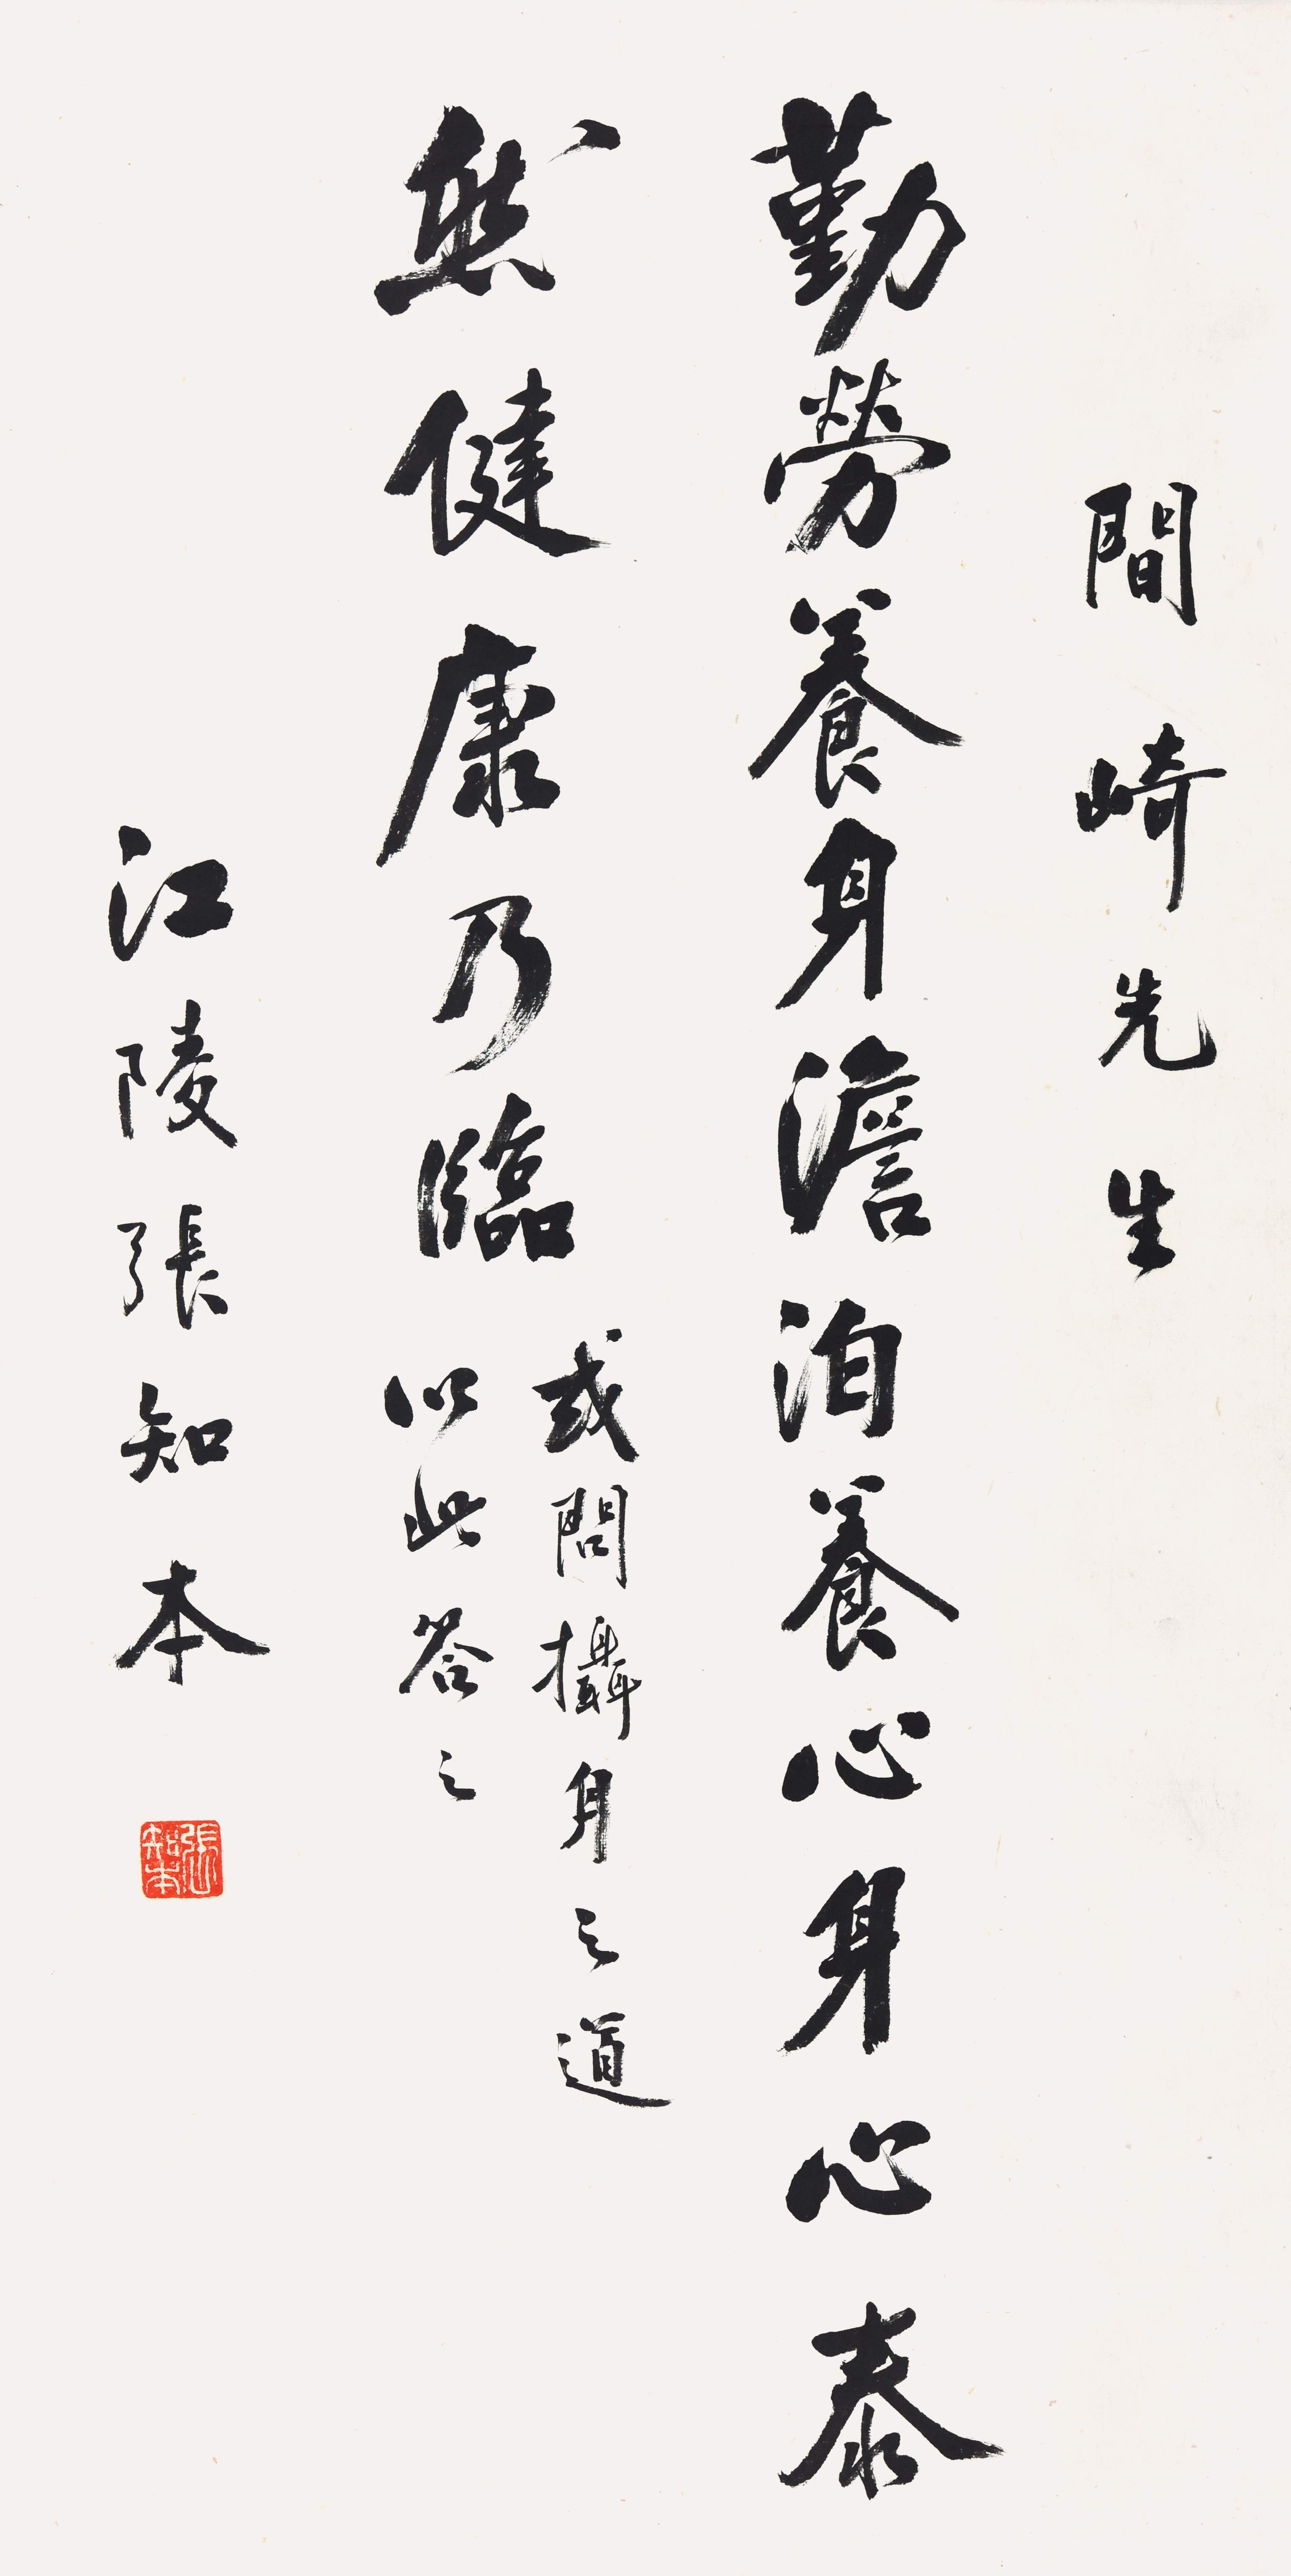 間崎先生
勤勞養身澹泊養心身心泰
然健康乃臨
或問攝身之道
以此答之
江陵張知本
張知本